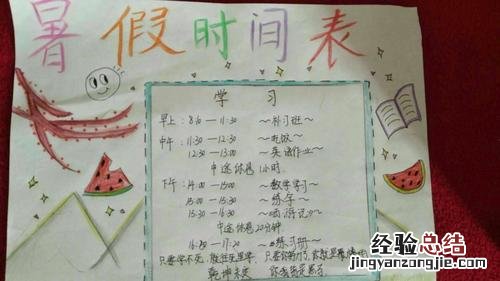 暑假时间表
学 习
早上：8:10—11:30 ～补习班～
中午：11:30—12:30 ～吃饭～
12:30—13:00 ～英语作业～
中途休息1小时.
下午：14:00—15:00 ～数学学习～
15:00—15:30 ～练字～
15:30—16:30
中途休息20分钟
16:50—17:20 ～练习册～
只要学不死，就往死里学.
乾坤未定
经验总结
jingyanzongjie.com